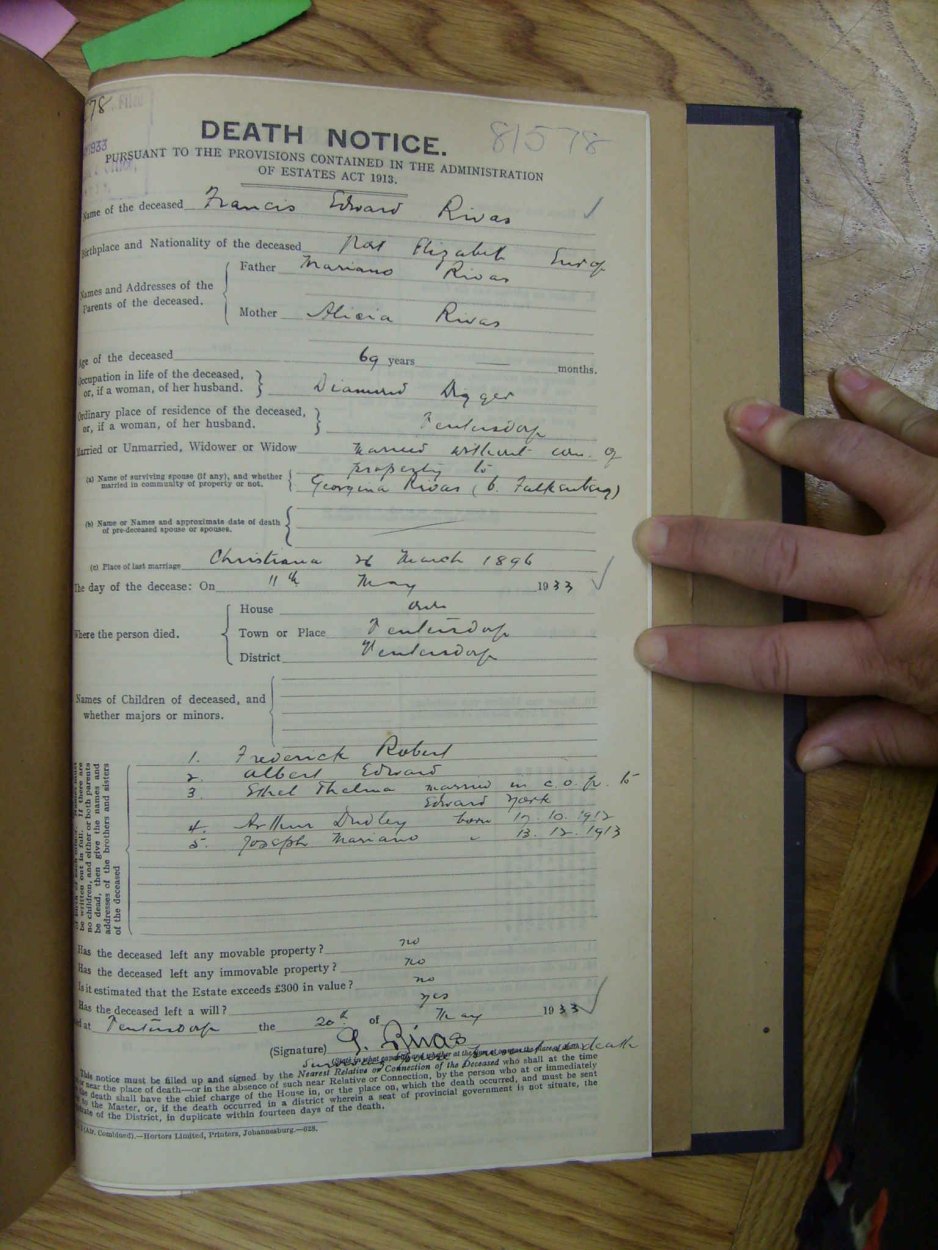 78
1933
DEATH NOTICE. 81578
PURSUANT TO THE PROVISIONS CONTAINED IN THE ADMINISTRATION
OF ESTATES ACT 1913.
Name of the deceased Francis Edward Rivas
Birthplace and Nationality of the deceased Port Elizabeth Europ
Names and Addresses of the Parents of the deceased. Father Mariano Rivas
Mother Alicia Rivas
Age of the deceased 69 years — months.
Occupation in life of the deceased, or, if a woman, of her husband. Diamond Digger
Ordinary place of residence of the deceased, or, if a woman, of her husband. Ventersdorp
Married or Unmarried, Widower or Widow married without com. of
property to
(a) Name of surviving spouse (if any), and whether married in community of property or not. Georgina Rivas (b. Falkenberg)
(b) Name or Names and approximate date of death of pre-deceased spouse or spouses.
(c) Place of last marriage Christiana 26 March 1896
The day of the decease: On 11th May 1933
Where the person died. House own
Town or Place Ventersdorp
District Ventersdorp
Names of Children of deceased, and
whether majors or minors.
1. Frederick Robert
2. Albert Edward
3. Ethel Thelma married in c.o.p. to
Edward York
4. Arthur Dudley born 17.10.1912
5. Joseph Mariano " 13.12.1913
be written out in full. If there are
no children, and either or both parents
be dead, then give the names and
addresses of the brothers and sisters
of the deceased
Has the deceased left any movable property? no
Has the deceased left any immovable property? no
Is it estimated that the Estate exceeds £300 in value? no
Has the deceased left a will? yes
at Ventersdorp the 20th of May 1933
(Signature) G. Rivas
death
This notice must be filled up and signed by the Nearest Relative or Connection of the Deceased who shall at the time
or near the place of death—or in the absence of such near Relative or Connection, by the person who at or immediately
the death shall have the chief charge of the House in, or the place on, which the death occurred, and must be sent
the Master, or, if the death occurred in a district wherein a seat of provincial government is not situate, the
of the District, in duplicate within fourteen days of the death.
Combined).—Hortors Limited, Printers, Johannesburg.—628.